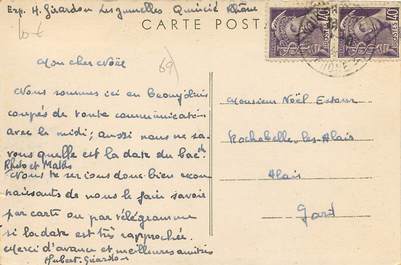 Exp. H. Girardon Les jumelles Quincié Rhône
CARTE POST
POSTES
40
POSTES
40
69
Mon cher Noël
Nous sommes ici en beaujolais
coupés de toute communication
avec le midi ; aussi nous ne sa-
vous quelle est la date du bac
Philo et Maths
Nous te serions donc bien recon-
naissants de nous le faire savoir
par carte ou par télégramme
si la date est très rapprochée.
Merci d'avance et meilleures amitiés
Hubert Girardon
Monsieur Noël
Rochebelle-les-Alais
Alais
Gard